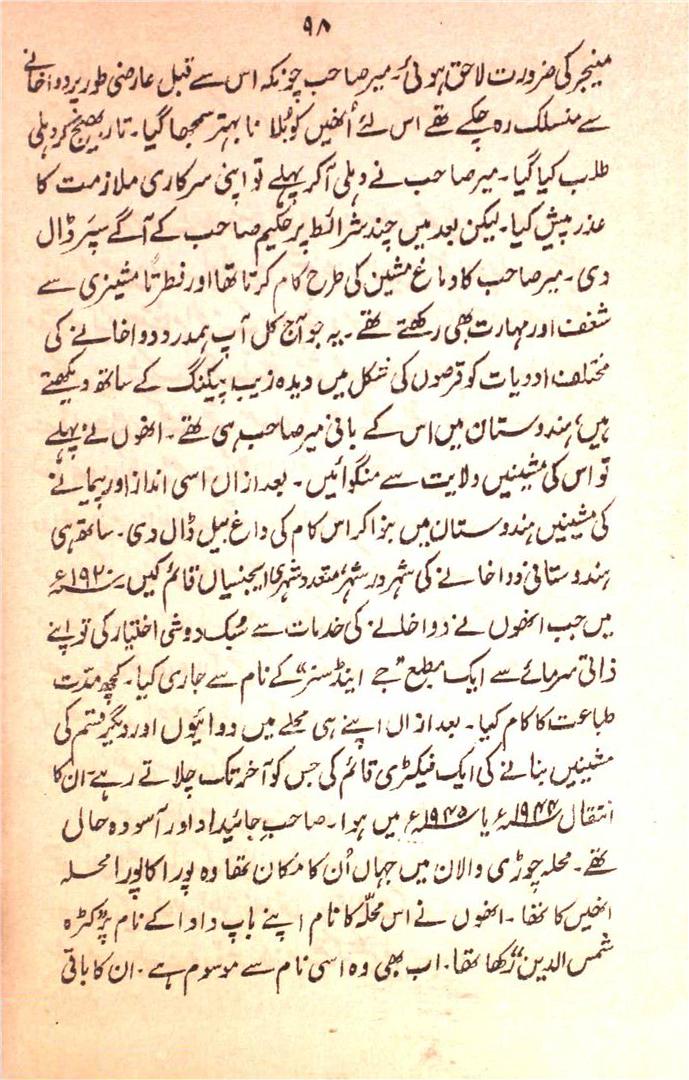 ۹۸
مینیجر کی ضرورت لاحق ہوئی۔ میر صاحب چونکہ اس سے قبل عارضی طور پر دواخانے
سے منسلک رہ چکے تھے اس لئے اُنھیں کو بُلانا بہتر سمجھا گیا۔ تار بھیج کر دہلی
طلب کیا گیا۔ میر صاحب نے دہلی آکر پہلے تو اپنی سرکاری ملازمت کا
عذر پیش کیا۔ لیکن بعد میں چند شرائط پر حکیم صاحب کے آگے سپر ڈال
دی۔ میر صاحب کا دماغ مشین کی طرح کام کرتا تھا اور فطرتاً مشینری سے
شغف اور مہارت بھی رکھتے تھے۔ یہ جو آج کل آپ ہمدرد دواخانے کی
مختلف ادویات کو قرصوں کی شکل میں دیدہ زیب پیکنگ کے ساتھ دیکھتے
ہیں، ہندوستان میں اس کے بانی میر صاحب ہی تھے۔ انھوں نے پہلے
تو اس کی مشینیں ولایت سے منگوائیں۔ بعد ازاں اسی انداز اور پیمانے
کی مشینیں ہندوستان میں بنوا کر اس کام کی داغ بیل ڈال دی۔ ساتھ ہی
ہندوستانی دواخانے کی شہر در شہر، متعدد شہری ایجنسیاں قائم کیں۔ ۱۹۲۰ء
میں جب انھوں نے دواخانے کی خدمات سے سُبک دوشی اختیار کی تو اپنے
ذاتی سرمائے سے ایک مطبع "جے اینڈ سنز" کے نام سے جاری کیا۔ کچھ مدّت
طباعت کا کام کیا۔ بعد ازاں اپنے ہی محلے میں دوائیوں اور دیگر قسم کی
مشینیں بنانے کی ایک فیکٹری قائم کی جس کو آخر تک چلاتے رہے۔ ان کا
انتقال ۱۹۴۴ء یا ۱۹۴۵ء میں ہوا۔ صاحبِ جائیداد اور آسودہ حال
تھے۔ محلہ چوڑی والان میں جہاں اُن کا مکان تھا وہ پورا کا پورا محلہ
انھیں کا تھا۔ انھوں نے اس محلّہ کا نام اپنے باپ دادا کے نام پر "کٹرہ
شمس الدین" رکھا تھا۔ اب بھی وہ اسی نام سے موسوم ہے۔ ان کا باقی